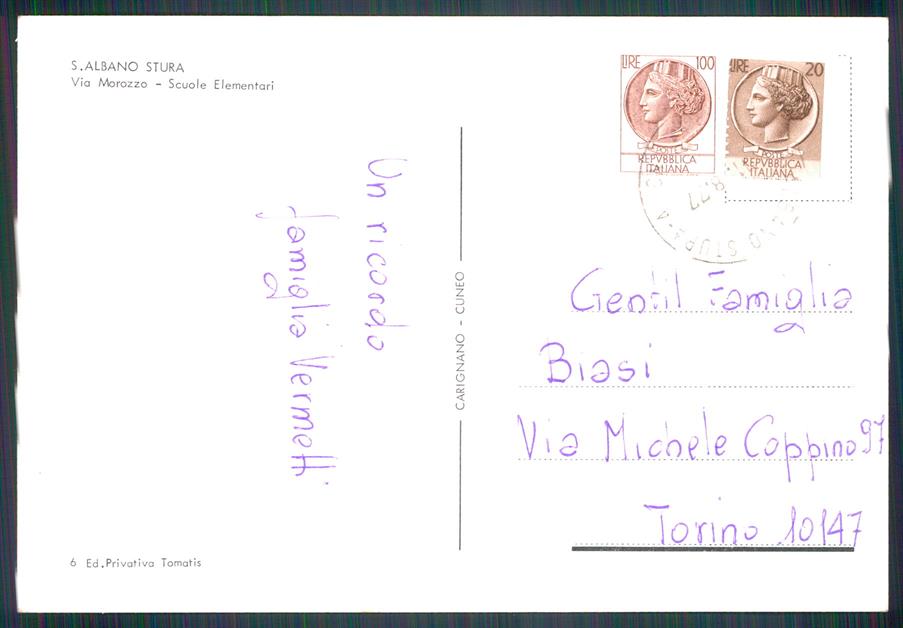 S.ALBANO STURA
Via Morozzo - Scuole Elementari
LIRE 100
POSTE
REPVBBLICA
ITALIANA
LIRE 20
POSTE
REPVBBLICA
ITALIANA
8.77
STURA
Un ricordo
famiglia Vermetti
CARIGNANO - CUNEO
Gentil Famiglia
Biasi
Via Michele Coppino 97
Torino 10147
6 Ed.Privativa Tomatis